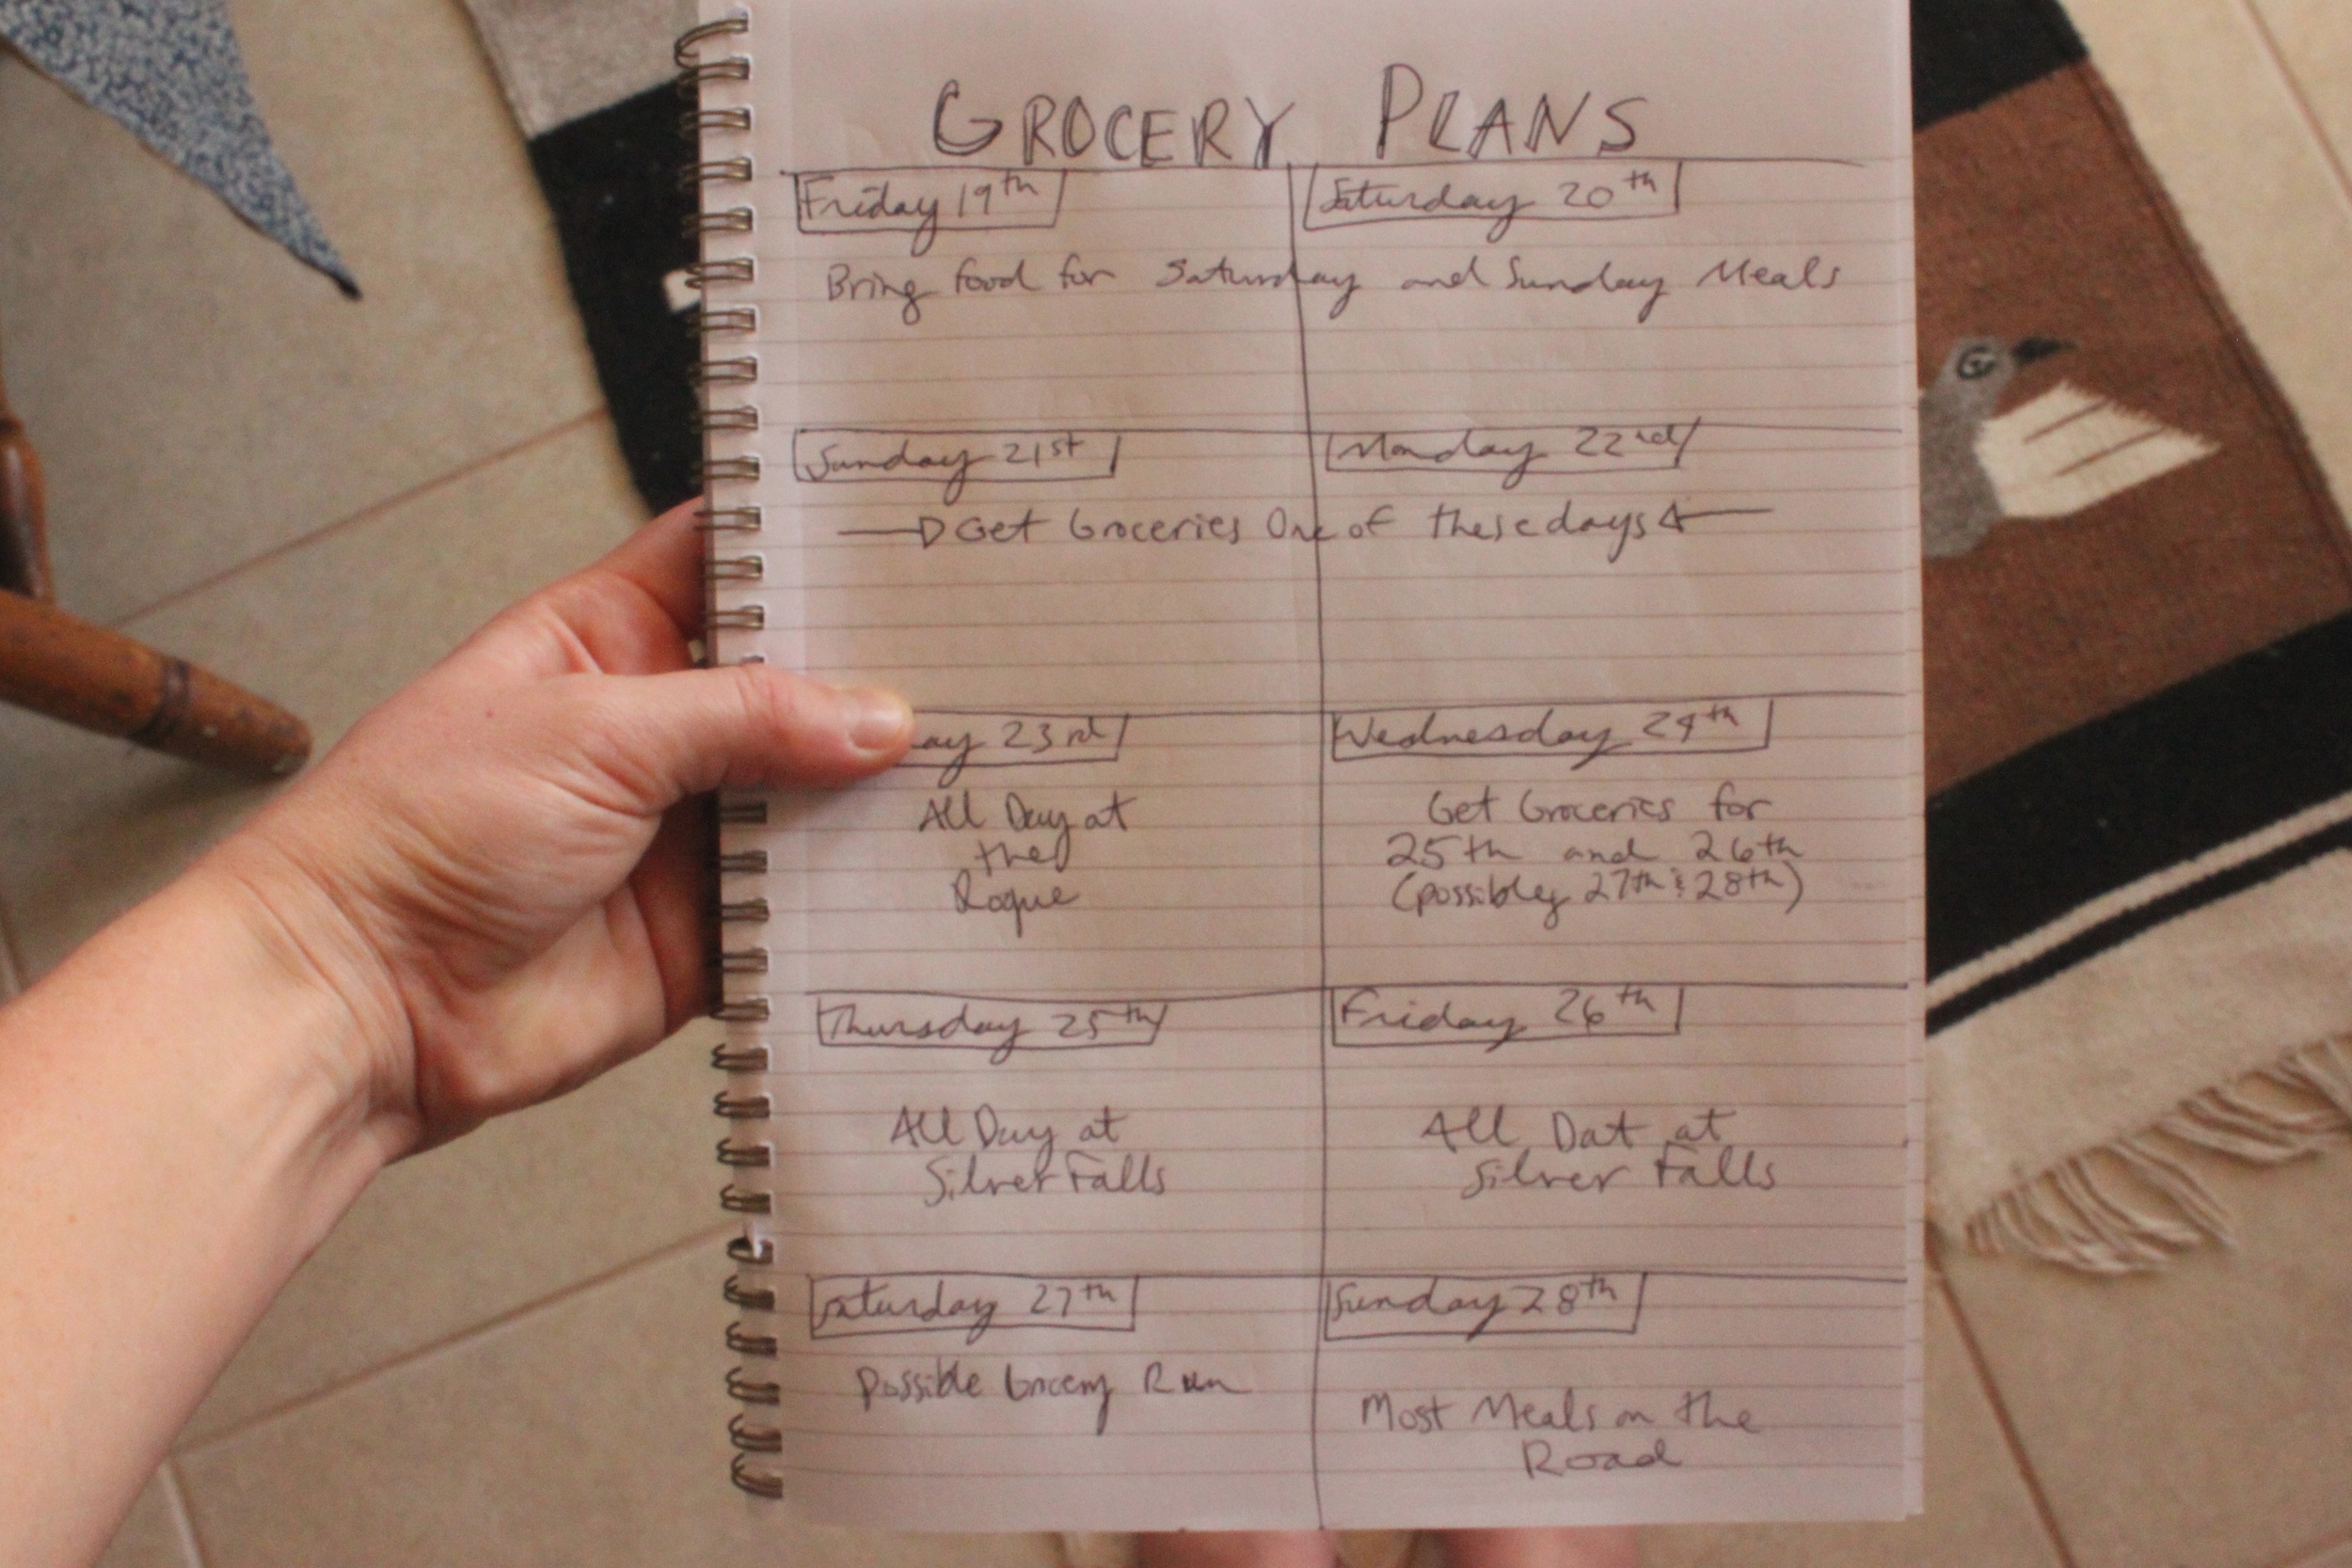 GROCERY PLANS
Friday 19th
Saturday 20th
Bring food for Saturday and Sunday Meals
Sunday 21st
Monday 22nd
Get Groceries One of these days
ay 23rd
All Day at
the
Rogue
Wednesday 24th
Get Groceries for
25th and 26th
(possibley 27th & 28th)
Thursday 25th
All Day at
Silver Falls
Friday 26th
All Dat at
Silver Falls
Saturday 27th
Possible Grocery Run
Sunday 28th
Most Meals on the
Road